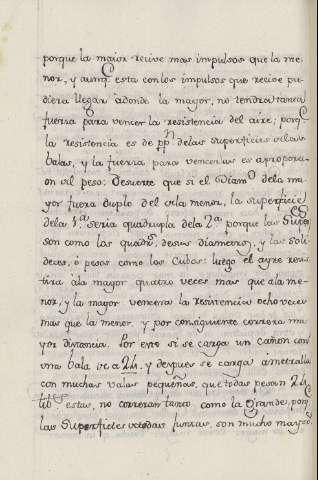 porque la maior recive mas impulsos que la me-
nor, y aunq. esta con los impulsos que recive pu-
diera llegar adonde la mayor, no tendra tanta
fuerza para vencer la resistencia del aire; porq.
la resistencia es de ppn. de las superficies de las
balas, y la fuerza para vencerlas es a propor-
on del peso: De suerte que si el Diamo. dela ma-
yor fuera duplo del dela menor, la superficie
dela 1a. seria quadrupla dela 2a. porque las Super
son como las quadros. de sus diametros, y las soli-
deces, ó pesos como los Cubos: luego el ayre resis-
tira ála mayor quatro veces mas que ála me-
nor, y la mayor vencera la resistencia ocho veces
mas que la menor, y por consiguiente correra ma-
yor distancia. Por esto si se carga un cañon con
una bala de a 24, y despues se carga á metralla
con muchas valas pequeñas, que todas pesan 24
lib. estas, no correran tanto como la grande, porq.
las Superficies de todas juntas, son mucho mayo